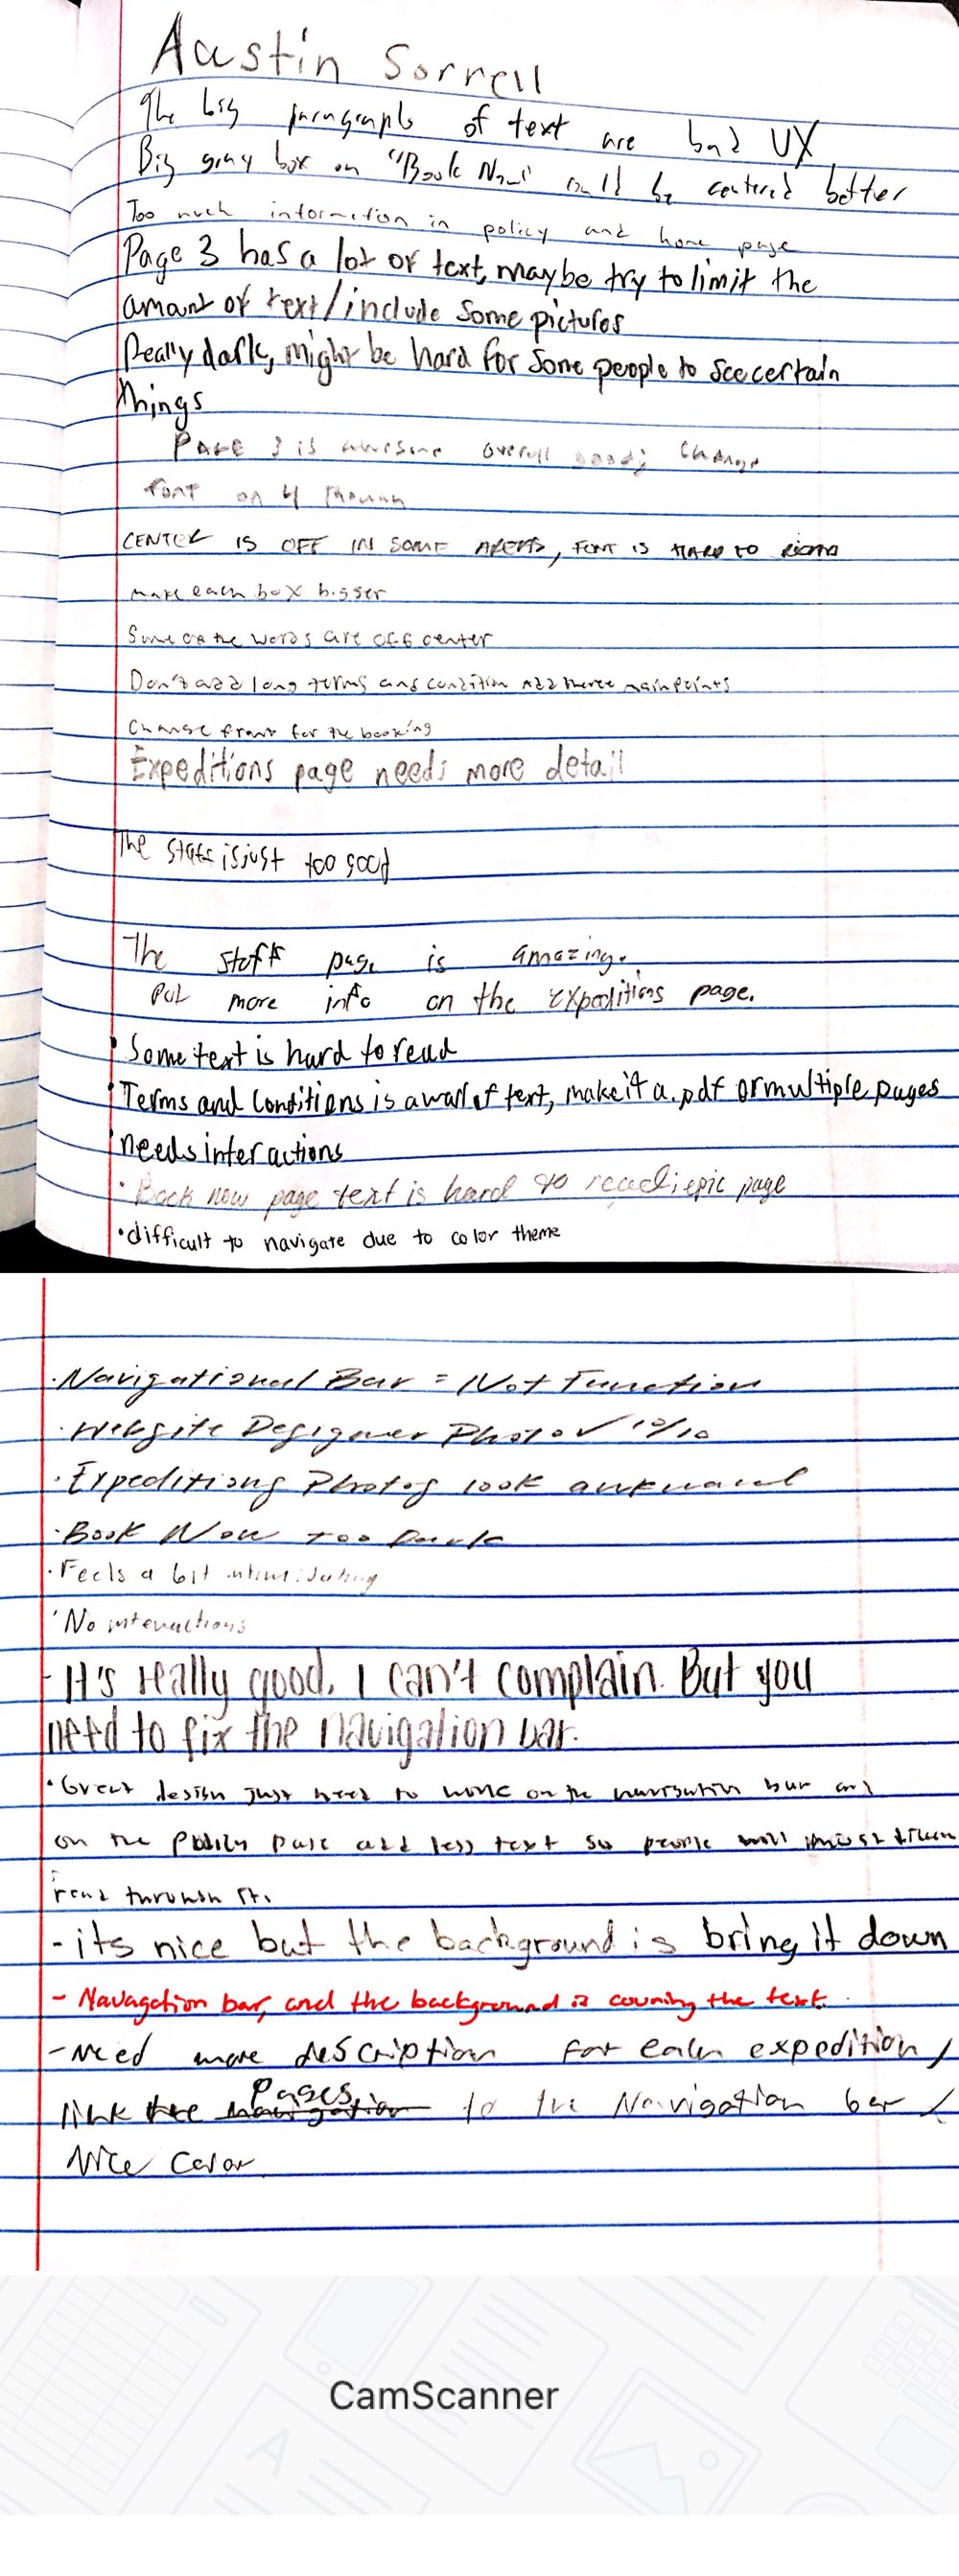 Austin Sorrell
The big paragraphs of text are bad UX
Big gray box on "Book Now" could be centered better
Too much information in policy and home page
Page 3 has a lot of text, maybe try to limit the
amount of text/include some pictures
Really dark, might be hard for some people to see certain
things
PAGE 3 is awesome overall good; change
font on 4 though
CENTER IS OFF IN SOME AREAS, FONT IS HARD TO
make each box bigger
Some of the words are off center
Don't add long terms and condition add there main points
Change front for the booking
Expeditions page needs more detail
The staff is just too good
The staff page is amazing.
Put more info on the expeditions page.
• Some text is hard to read
• Terms and Conditions is a wall of text, make it a .pdf or multiple pages
• needs interactions
• Book now page text is hard to read; epic page
• difficult to navigate due to color theme
• Navigational Bar = Not Function
• Website Designer Photo 10/10
• Expeditions Photos look awkward
• Book Now too Dark
• Feels a bit intimidating
• No interactions
- It's really good, I can't complain. But you
need to fix the navigation bar.
• Great design just need to work on the navigation bar and
on the policy page add less text so people will
read through it.
- its nice but the background is bring it down
- Navagation bar, and the background is coming the text.
- Need more description for each expedition/
link the pages to the Navigation bar/
Nice Color
CamScanner